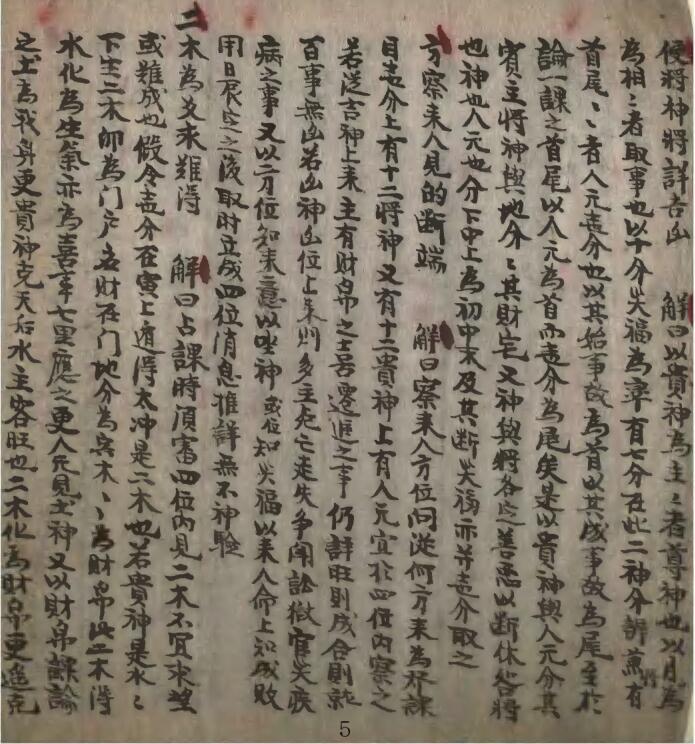 便將神將詳吉凶　解曰以貴神為主主者尊神也以月將為
為相相者取事也以十分災福為率有七分在此二神分辨蒫有
首尾尾者人元盍分也以其始事故為首以其成事故為尾至於
論一課之首尾以人元為首而盍分為尾矣是以貴神與人元分其
賓主將神與地分分其財宅又神與將各定善惡以斷休咎將
也神也人元也分下中上為初中末及其斷災福亦並盍分取之
方察來人見的斷端　解曰察來人方位向從何方來為抔課
目盍分上有十二將神又有十二貴神上有人元宜於四位內察之
若從吉神上來主有財帛之士若遷進之事仍詳旺則成合則就
百事無凶若凶神凶位上來則多主死亡走失爭鬧訟獄官災疾
病之事又以方位知來意以坐神或位知災福以來人命上知成敗
用日辰定之後取時立成四位消息推詳無不神驗
二木為爻求難得　解曰占課時須審四位內見二木不宜求望
或難成也假令盍分在寅上遁得太沖是二木也若貴神是水水
下生二木卯為门戶者財在门地分為寅木木為財帛此二木得
水化為生氣亦為喜事七里應之更人元見土神又以財帛課論
之土為我身更貴神克天后水主客旺也二木化為財帛更遙克
5